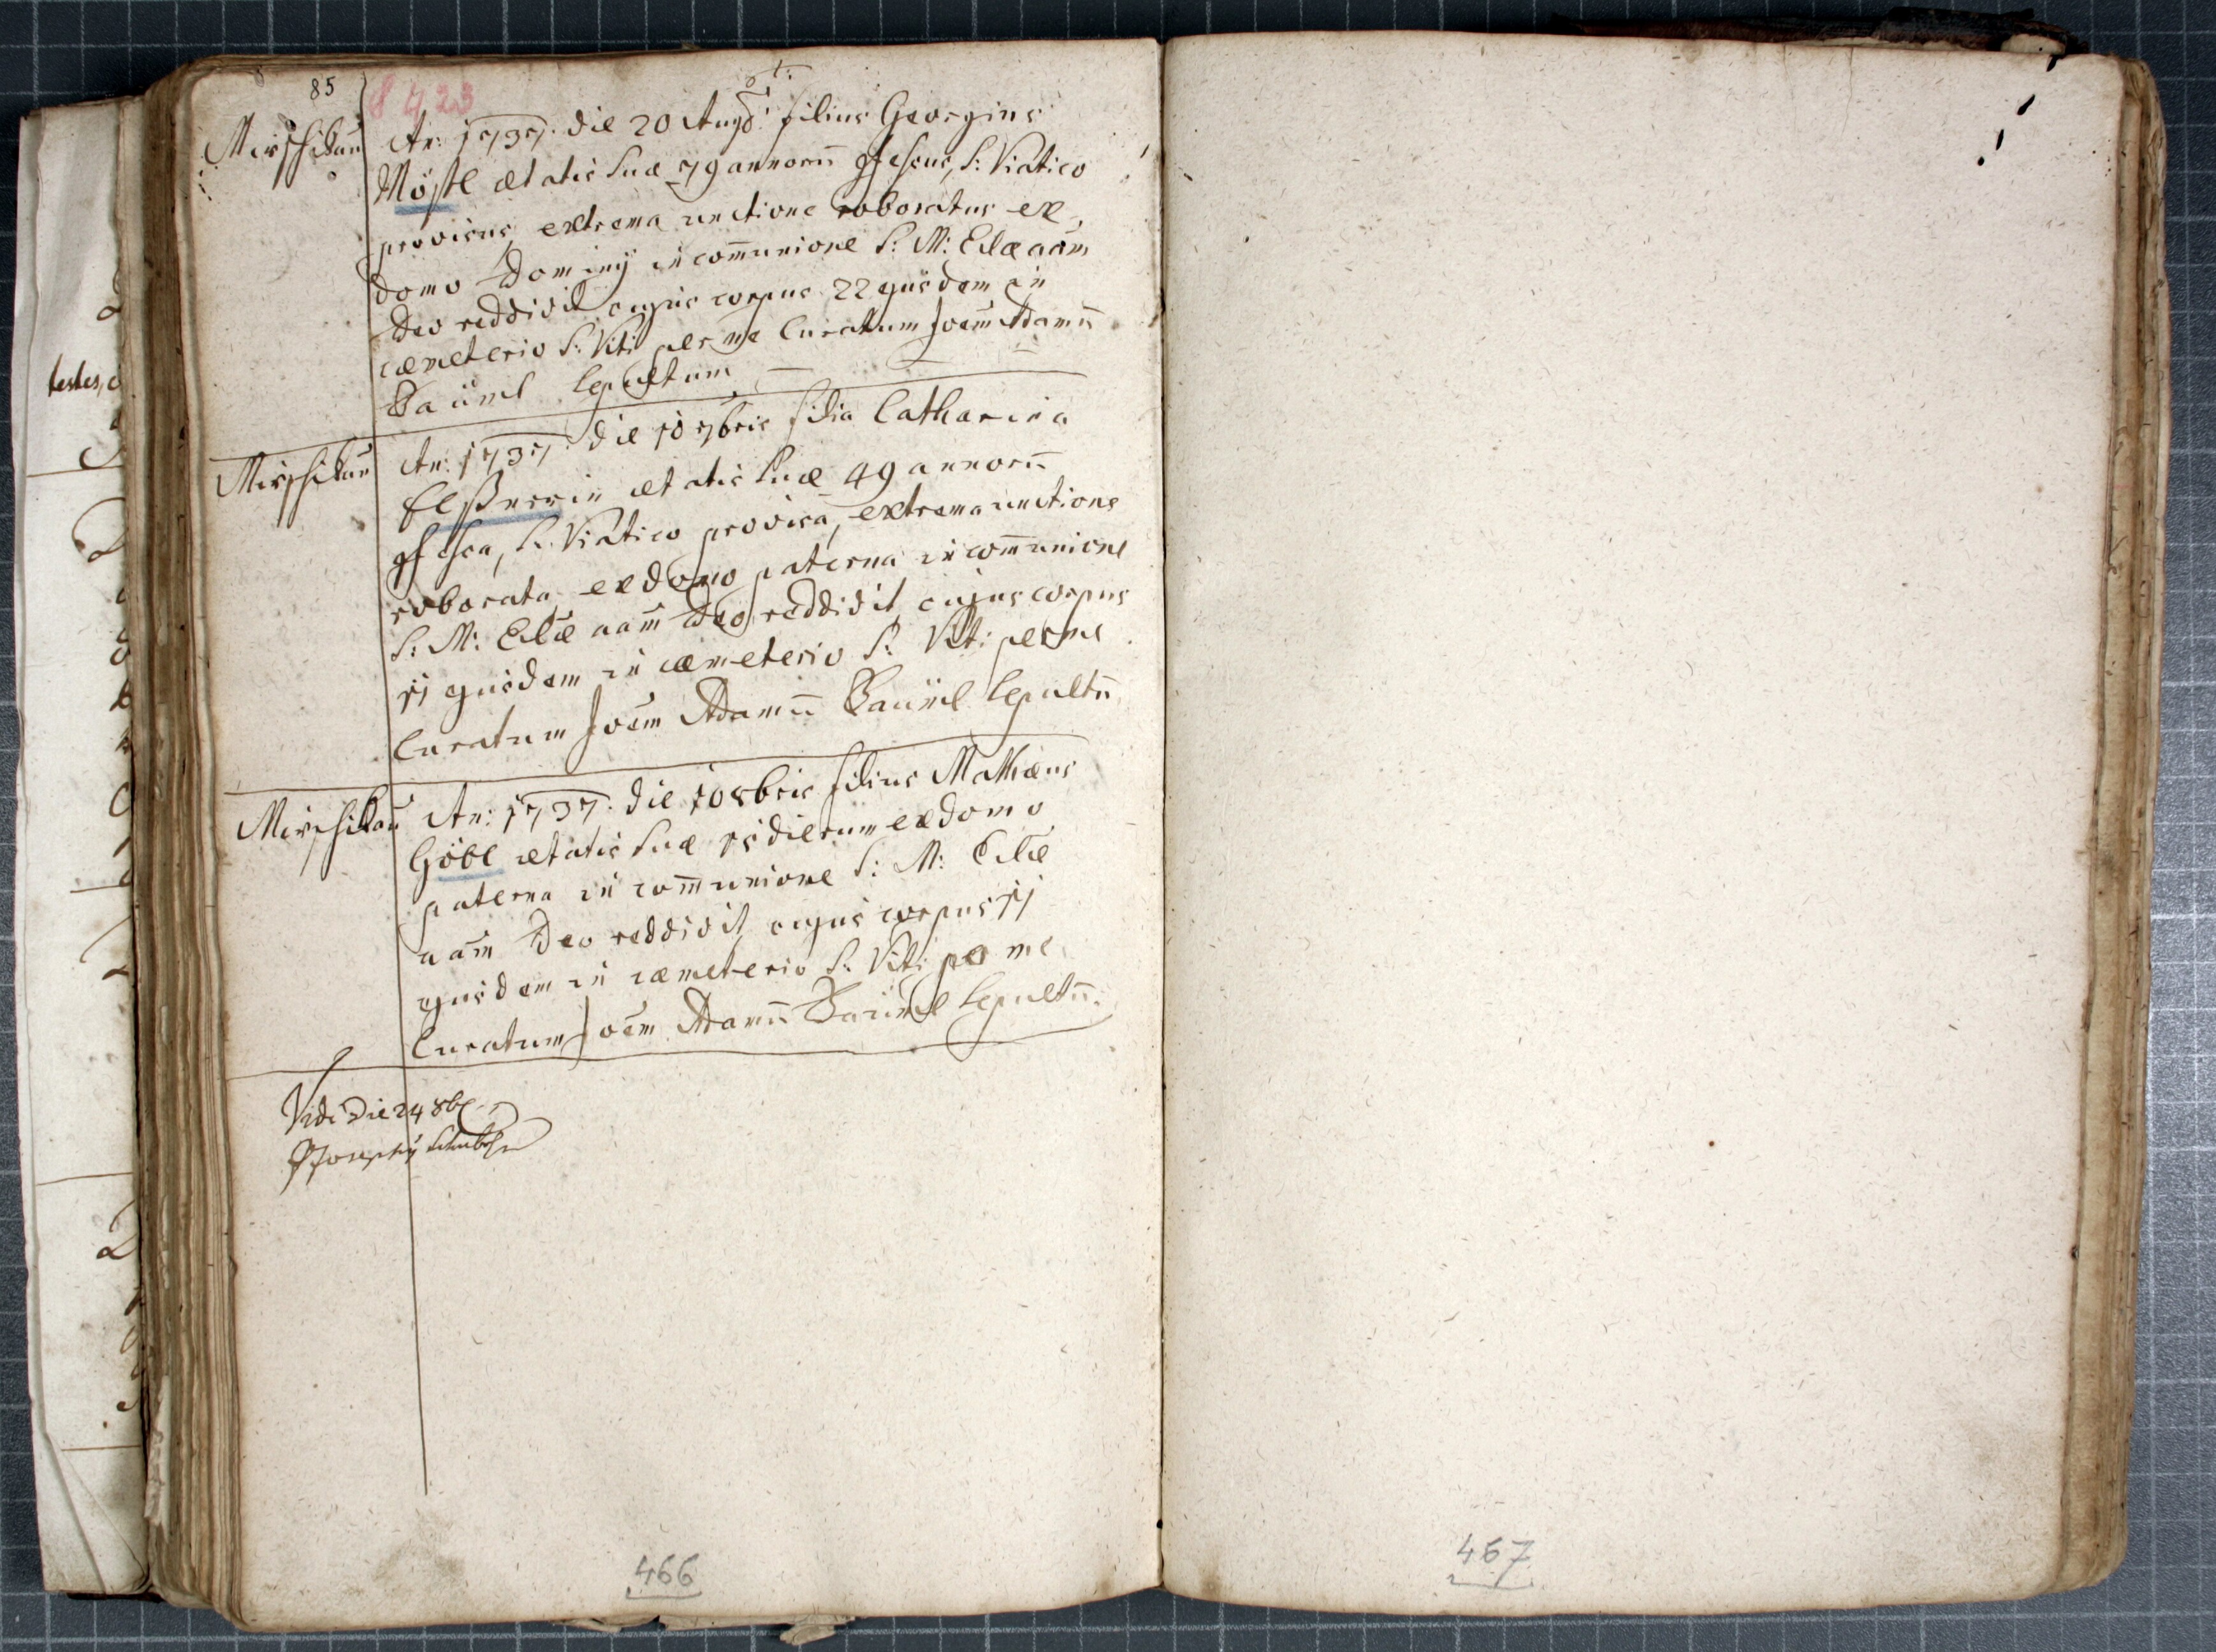 85
8423
Mirschikau An: 1737. die 20 Augusti filius Georgius
Möstl ætatis suæ 79 annorū cfessus, S: Viatico
provisus, extrema unctione roboratus ex
domo Dominij in com̄unione S: M: Eclæ aam̄
Deo reddidit cujus corpus 22 ejusdem in
cæmeterio S: Viti per me Curatum Joem̄ Adamū
Baüml sepultum
Mirschikau An: 1737. die 10 7bris filia Catharina
Elßnerin ætatis suæ 49 annorū
cfessa, S: Viatico provisa, extrema unctione
roborata ex domo paterna in com̄unione
S: M: Eclæ aam̄ Deo reddidit, cujus corpus
11 ejusdem in cæmeterio S: Viti per me
Curatum Joem̄ Adamū Baüml sepultū
Mirschikau An: 1737. die 10 8bris filius Mathæus
Göbl ætatis suæ dierum ex domo
paterna in com̄unione S: M: Eclæ
aam̄ Deo reddidit, cujus corpus 11
ejusdem in cæmeterio S: Viti per me
Curatum Joem̄ Adamū Baüml sepultū.
Vidi die 24 8b
testes,
466
467